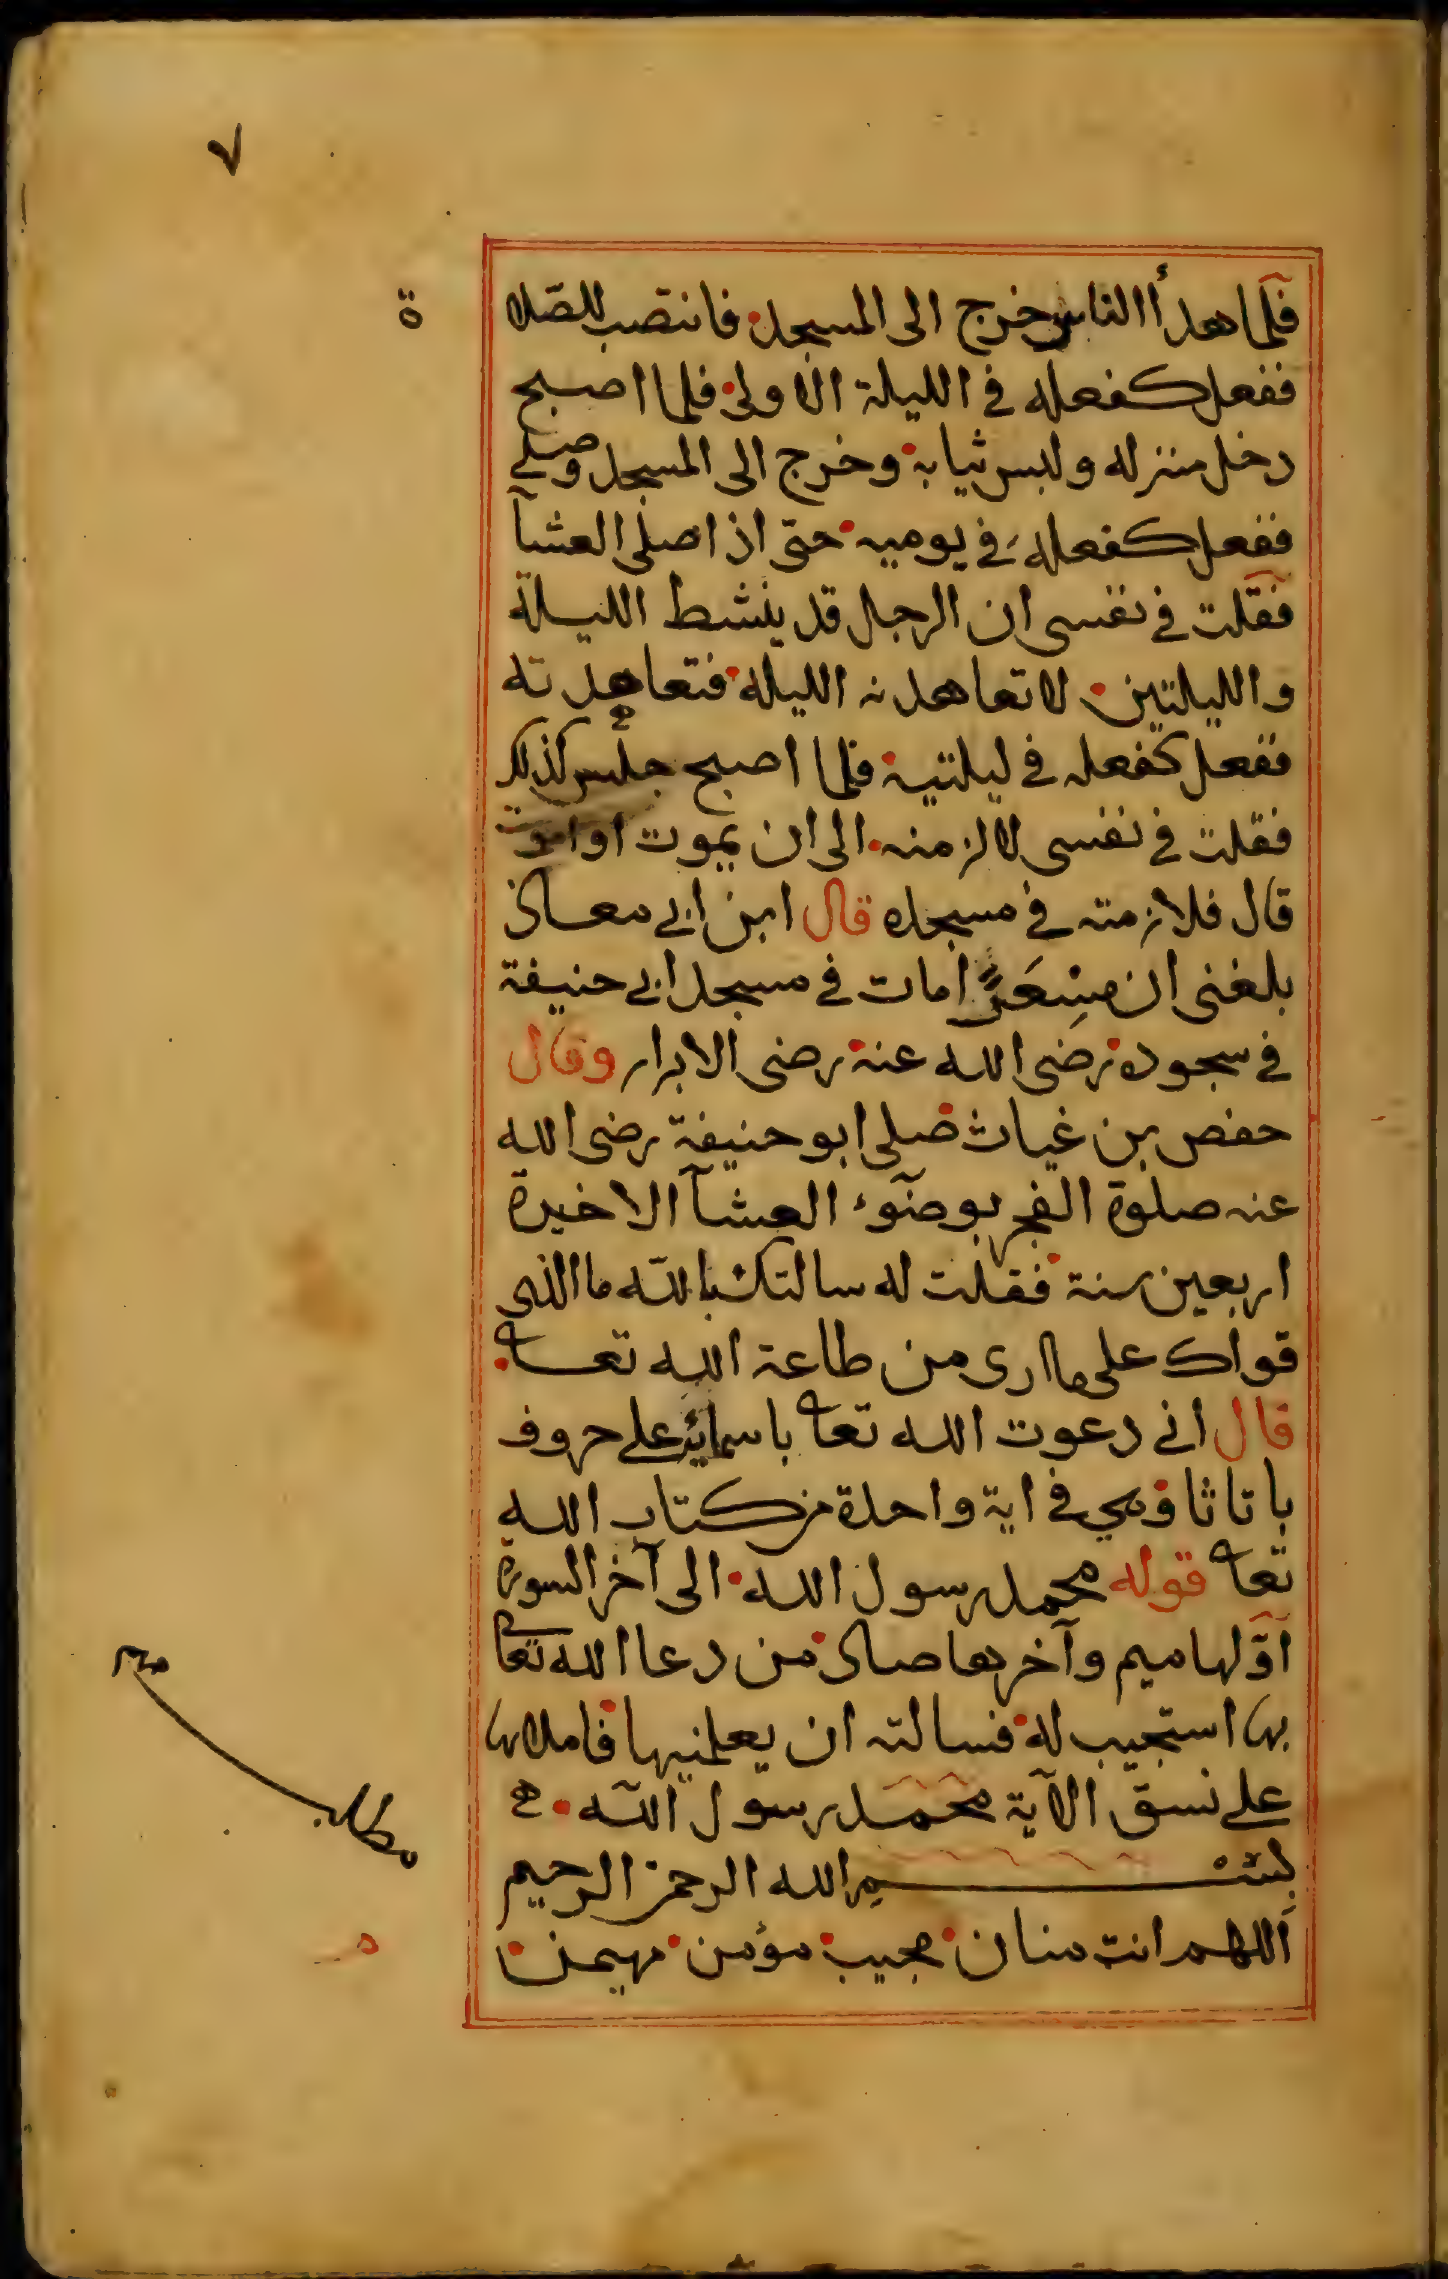 ٧
فلما هدأ الناس خرج الى المسجد فانتصب للصّلا
ة
ففعل كفعله في الليلة الاولى فلما اصبح
دخل منزله ولبس ثيابه وخرج الى المسجد وصلى
ففعل كفعله في يوميه حتى اذا صلى العشآ
فقلت في نفسى ان الرجل قد ينشط الليلة
والليلتين لاتعاهدنه الليلة فتعاهدته
ففعل كفعله في ليلتيه فلما اصبح جلس كذلك
فقلت في نفسى لالزمنه الى ان يموت او اموت
قال فلازمته في مسجده قال ابن ابي معاذ
بلغنى ان مِسْعَرًا مات في مسجد ابي حنيفة
في سجوده رضى الله عنه رضى الابرار وقال
حفص بن غياث صلى ابو حنيفة رضى الله
عنه صلوة الفجر بوضوء العشآ الاخيرة
اربعين سنة فقلت له سالتك بالله ما الذى
قواك على ما ارى من طاعة الله تعا
قال اني دعوت الله تعا باسمائه على حروف
با تا ثا وهي في اية واحدة من كتاب الله
تعا قوله محمد رسول الله الى آخر السورة
اوّلها ميم وآخرها صاد من دعا الله تعا
بها استجيب له فسالته ان يعلمنيها فاملاها
على نسق الآية محمد رسول الله
بسم الله الرحمن الرحيم
اللهم انت منان مجيب مؤمن مهيمن
مطلب
مهم